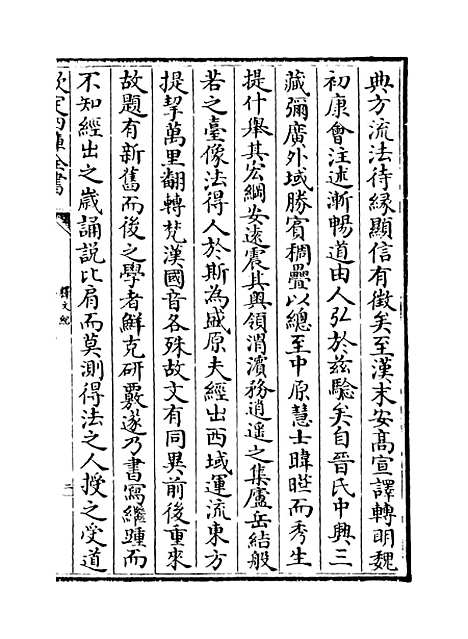 典方流法待緣顯信有徵矣至漢末安髙宣譯轉明魏
初康會注述漸暢道由人弘於兹驗矣自晉氏中興三
藏彌廣外域勝賓稠疊以總至中原慧士暐曄而秀生
提什舉其宏綱安遠震其奥領渭濱務逍遥之集廬岳結般
若之臺像法得人於斯為盛原夫經出西域運流東方
提挈萬里翻轉梵漢國音各殊故文有同異前後重來
故題有新舊而後之學者鮮克研覈遂乃書寫繼踵而
不知經出之歳誦説比肩而莫測得法之人授之受道
欽定四庫全書
釋文紀
二